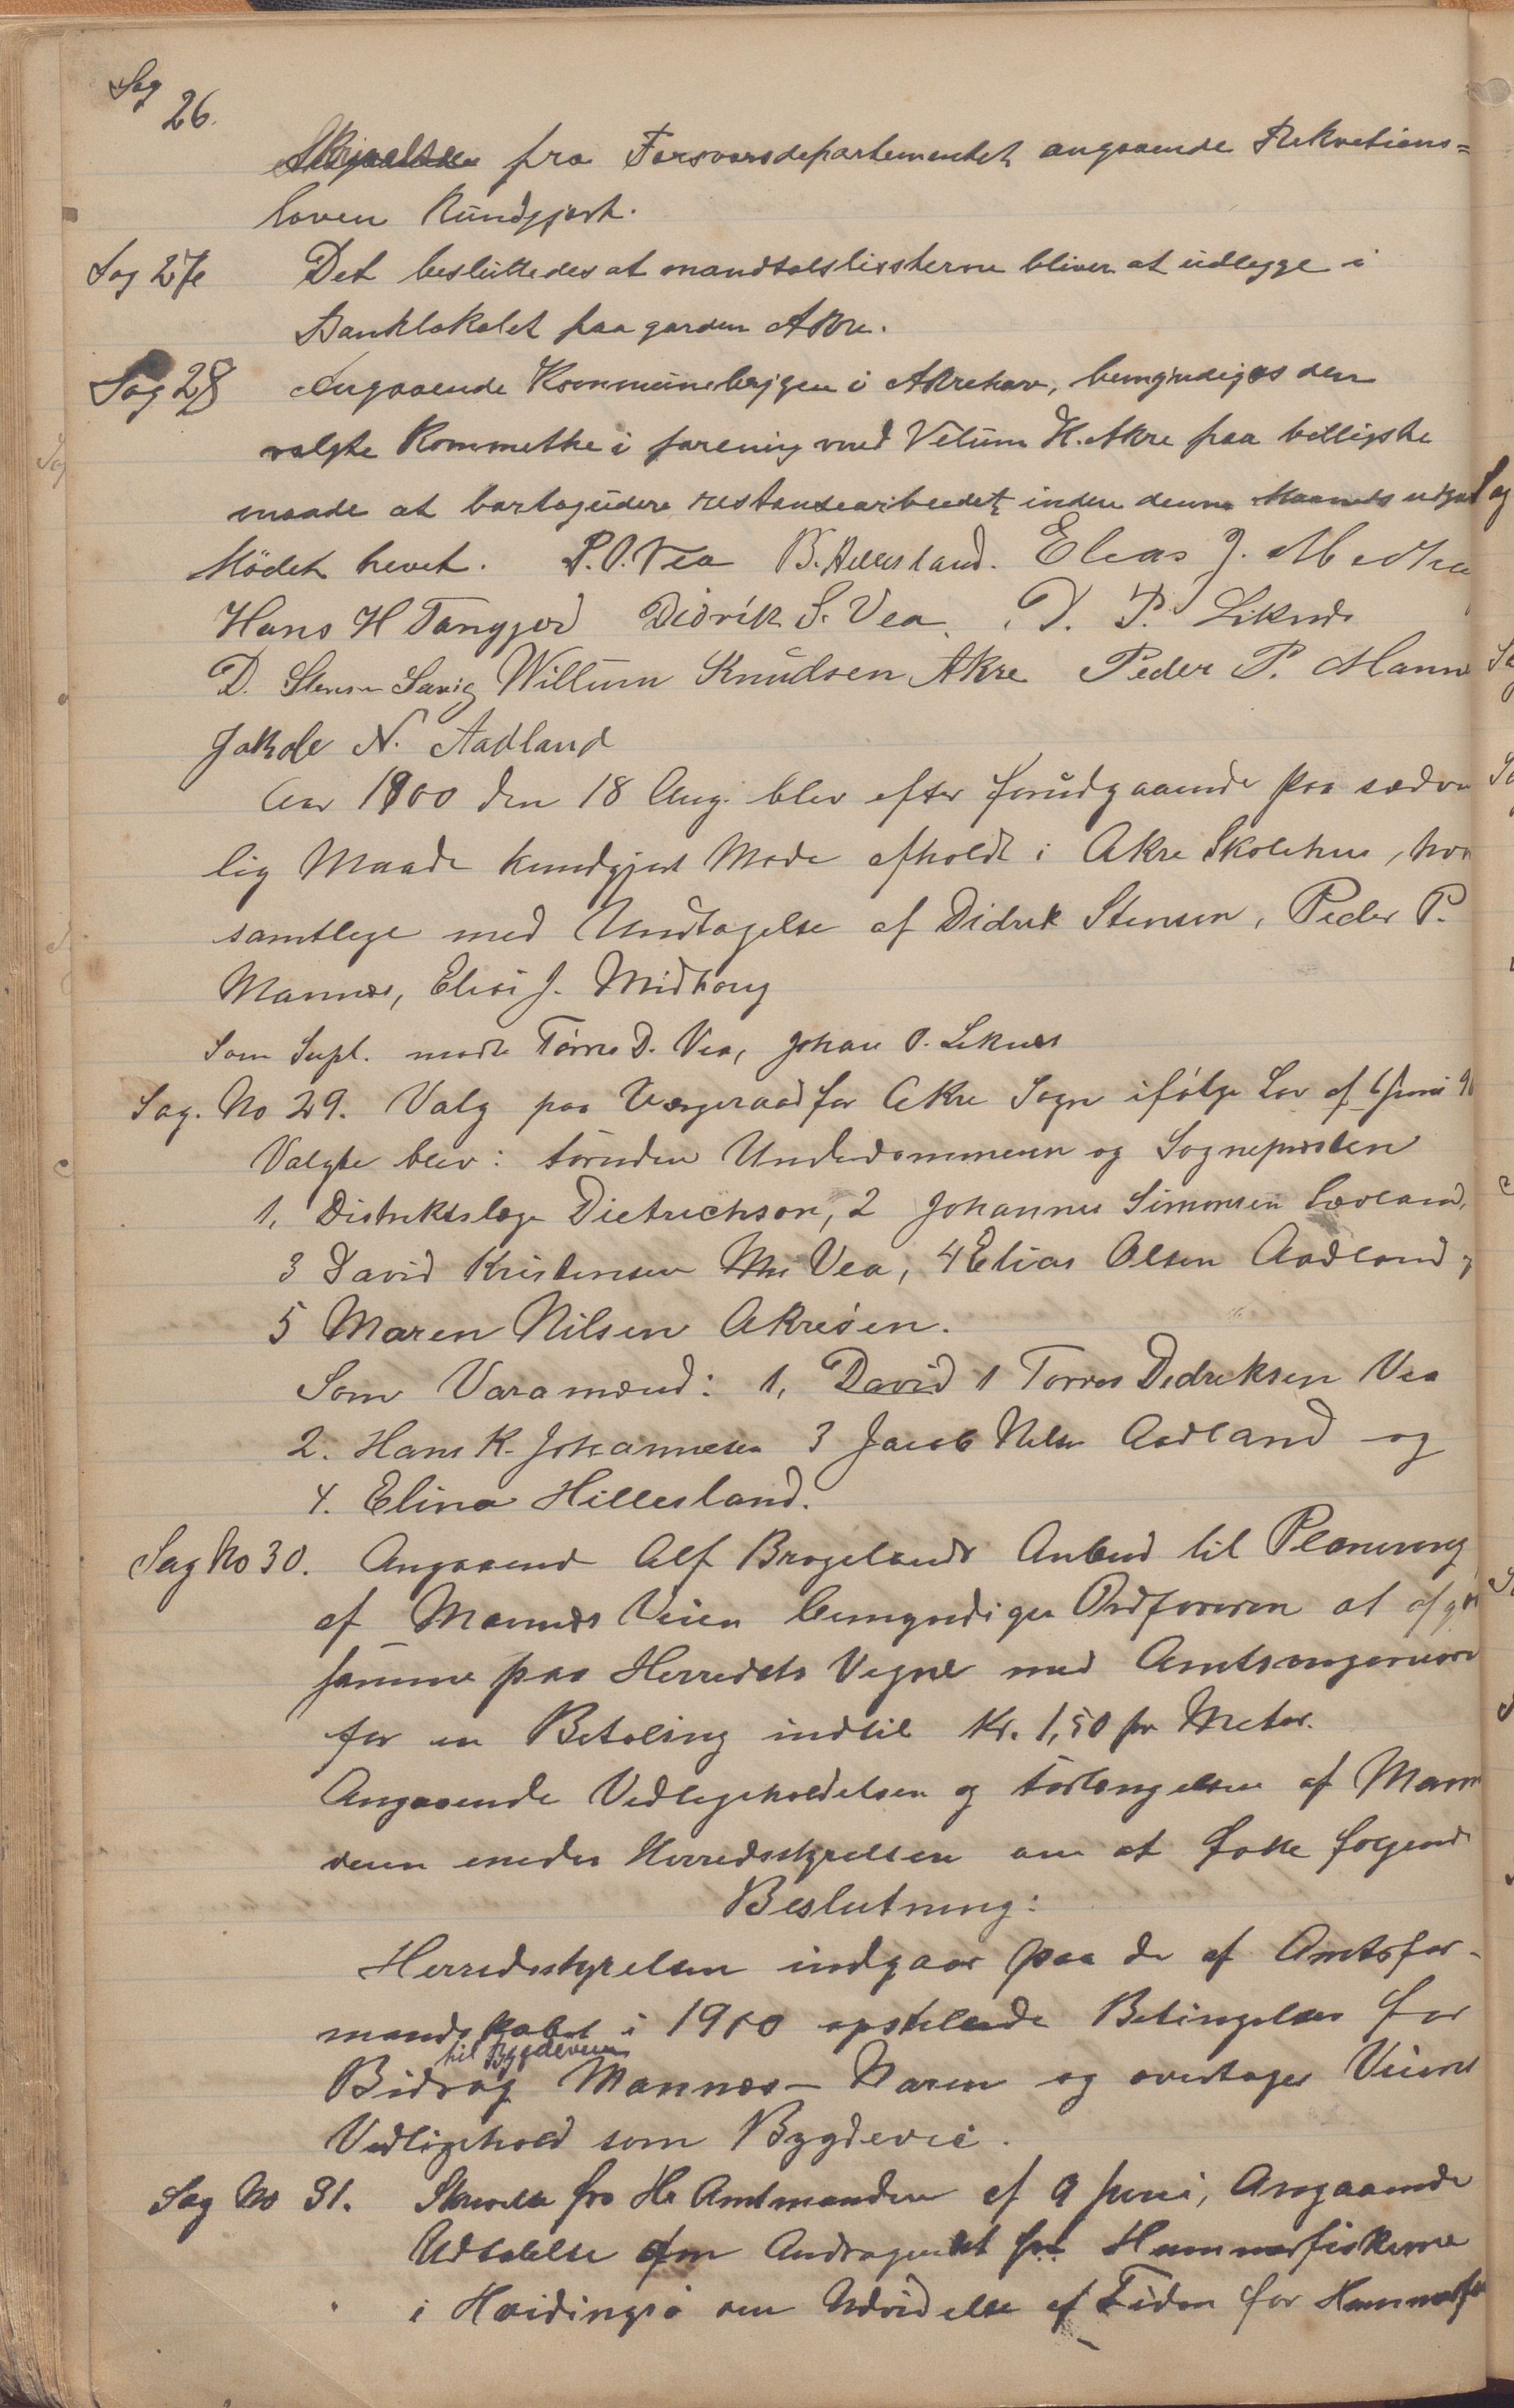 Sag
26.
Skrivelse fra Forsvarsdepartementet angaaende Rekvetions=
loven Kundgjort.
Sag 27de Det besluttedes at mandtalslissterne bliver at udlegge i
Banklokalet paa garden Akre.
Sag 28 Angaaende Kommunebrygen i Akrehavn, bemyndiges den
valgte Kommethe i forening med Velum H. Akre paa belligste
maade at bortagudere restansearbeidet inden denne Maaneds udgad
Mödet hevet. P.O. Vea B. Hillesland. Elias J. Medhu
Hans H Tangjerd Didrik S. Vea. D. P. Liknes
D. Stensen Sævig Willum Knudsen Akre Peder P. Manne
Jakob N. Aadland
Aar 1900 den 18 Aug. blev efter forudgaaende paa sædvan
lig Maade kundgjort Møde afholdt i Akre Skolehus, hvor
samtlige med Undtagelse af Didrik Stensen, Peder P.
Mannes, Elias J. Midhaug
Som Supl. mødte Tørres D. Vea, Johan O. Liknes
Sag. No 29. Valg paa Værgeraad for Akre Sogn ifølge Lov af 6 Juni 96
Valgte blev: foruden Underdommeren og Sognepresten
1, Distriktslæge Dietrichson, 2 Johannes Simonsen Sævland,
3 David Kristensen Vea, 4 Elias Olsen Aadland og
5 Maren Nilsen Akreøen.
Som Varamænd: 1, David 1 Torres Dedreksen Vea
2. Hans K. Johannesen 3 Jacob Nilsen Aadland og
4. Elina Hillesland.
Sag No 30. Angaaende Alf Brogelands Anbud til Planering
af Mannes Veien bemyndiges Ordføreren at afgjøre
samme paa Herredets Vegne med Amtsingeniøren
for en Betaling indtil Kr. 1,50 pr Meter.
Angaaende Vedligeholdelsen og forlængelsen af Mannes
veien enedes Herredsstyrelsen om at fatte følgende
Beslutning:
Herredsstyrelsen indgaar paa de af Amtsfor-
mandskabet i 1900 opstilede Betingelser for
til Bygdeveien
Bidrag Mannes - Naren og overtager Veiens
Vedligehold som Bygdevei.
Sag No 31. Skrivelse fra Hr Amtmanden af 9 Juni, Angaaende
Udtalelse om Andragendet fra Hummerfiskerne
i Hvidingsø om Udvidelse af Tiden for Hummerfis